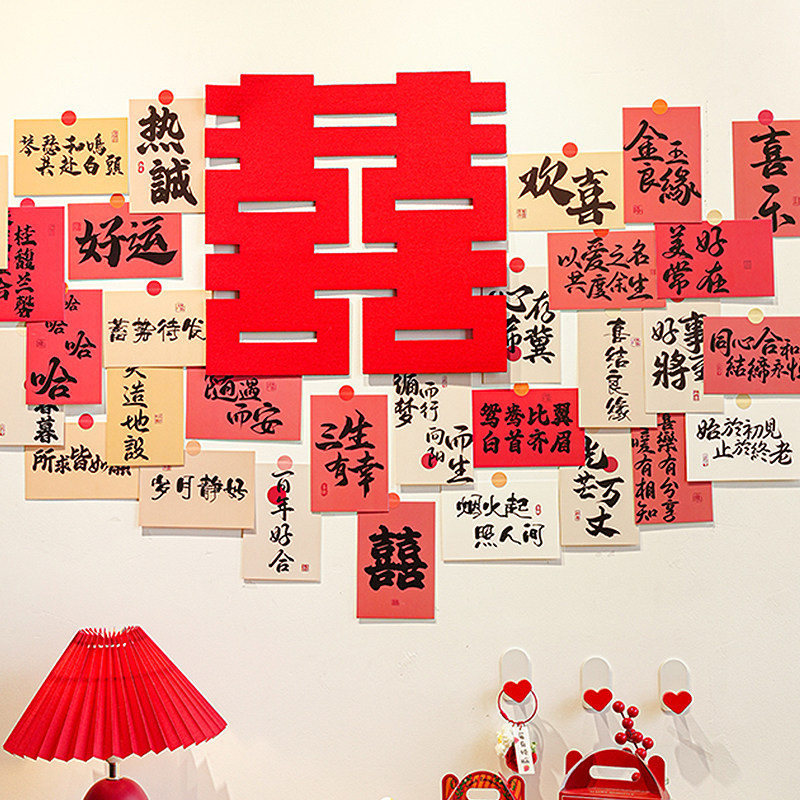 囍
琴瑟和鳴
共赴白頭
热
誠
好运
桂馥兰馨
合
哈
哈
哈
蓄势待发
天造地設
暮
所求皆如願
岁月静好
随遇
而安
百年好合
三生
有幸
囍
循梦
而行
向阳
而生
鸳鸯比翼
白首齐眉
烟火起
照人间
光芒万丈
心存
希冀
欢喜
金玉
良緣
喜
乐
以爱之名
共度余生
美好
常在
喜结良缘
好事
將
同心合和
結締永恒
始於初見
止於終老
喜樂有分享
暖有相知